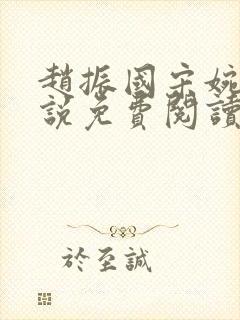 趙振國宋婉
說免費閱讀
於至誠